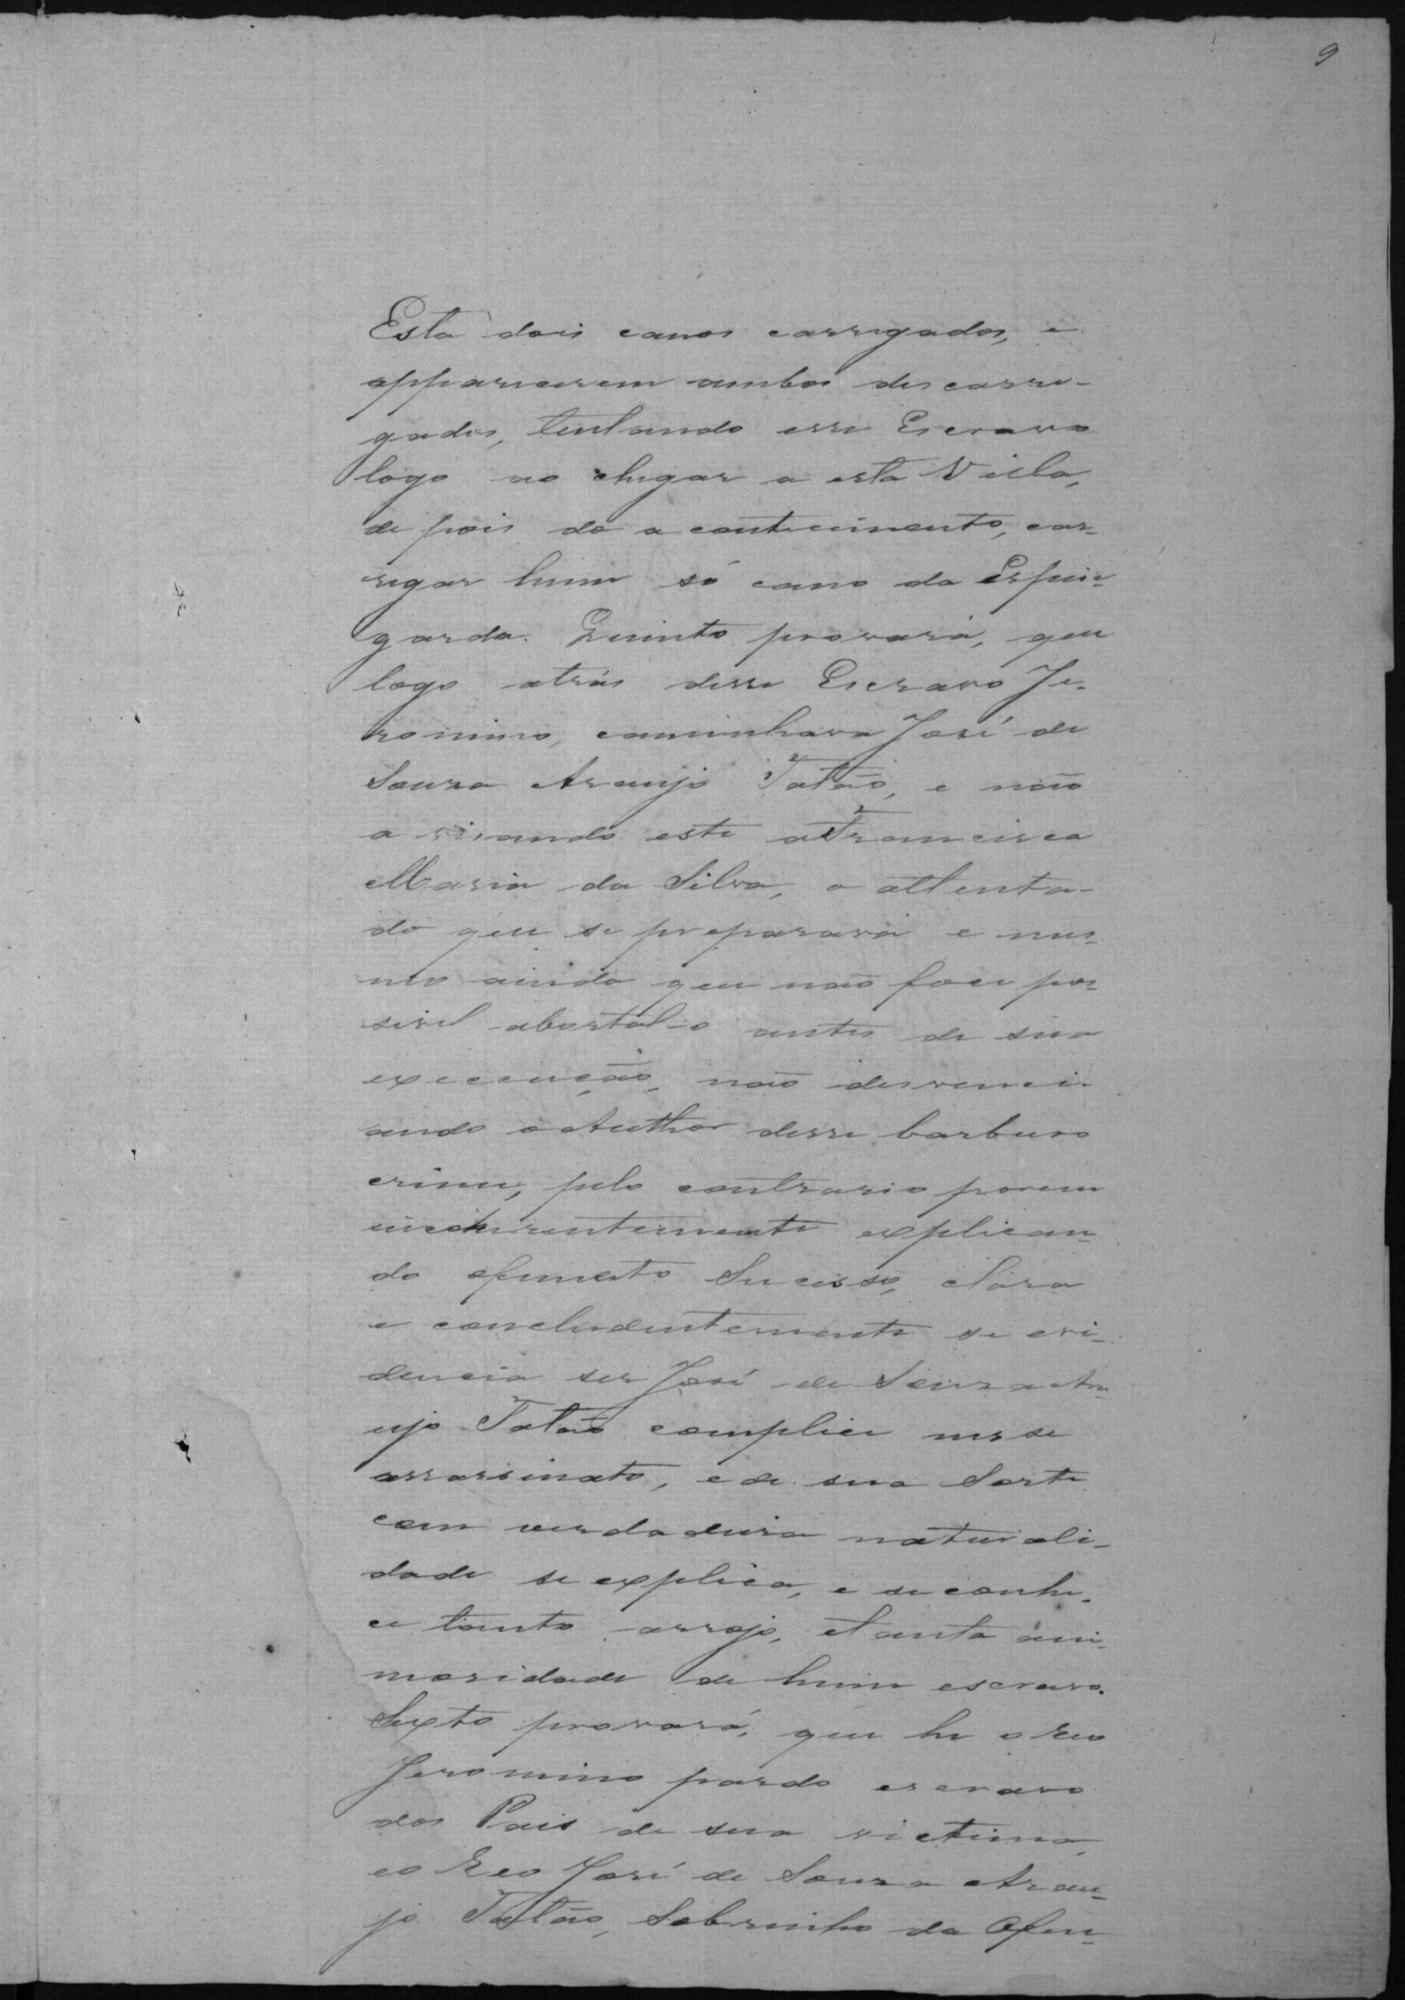 9
Esta dois canos carregados, e
appareceirem ambos descarre-
gados, tentando esse Escravo
logo ao chegar a esta Villa,
depois do acontecimento, car-
regar hum só cano da Espin-
garda. Quinto provará, que
logo atrás desse Escravo Je-
ronimo, caminhava José de
Souza Araujo Tatão, e não
avisando este a Francisca
Maria da Silva, o attenta-
do que se preparava e mes-
mo ainda que não foce pos-
sivel abortal-o antes de sua
execução, não desvenci-
ando o Author desse barbaro
crime, pelo contrario porem
incoherentemente explican-
do o funesto Sucesso, clara
e concludentemente se evi-
dencia ser José de Souza Ara-
ujo Tatão complice nesse
assassinato, e de sua Sorte
com verdadeira naturali-
dade se explica, e se conhe-
ce tanto arrojo, e tanta ani-
mosidade de hum escravo.
Sexto provará, que he o Reo
Jeronimo pardo escravo
dos Pais de sua victima,
e o Reo José de Souza Arau-
jo Tatão, Sobrinho da Ofen-